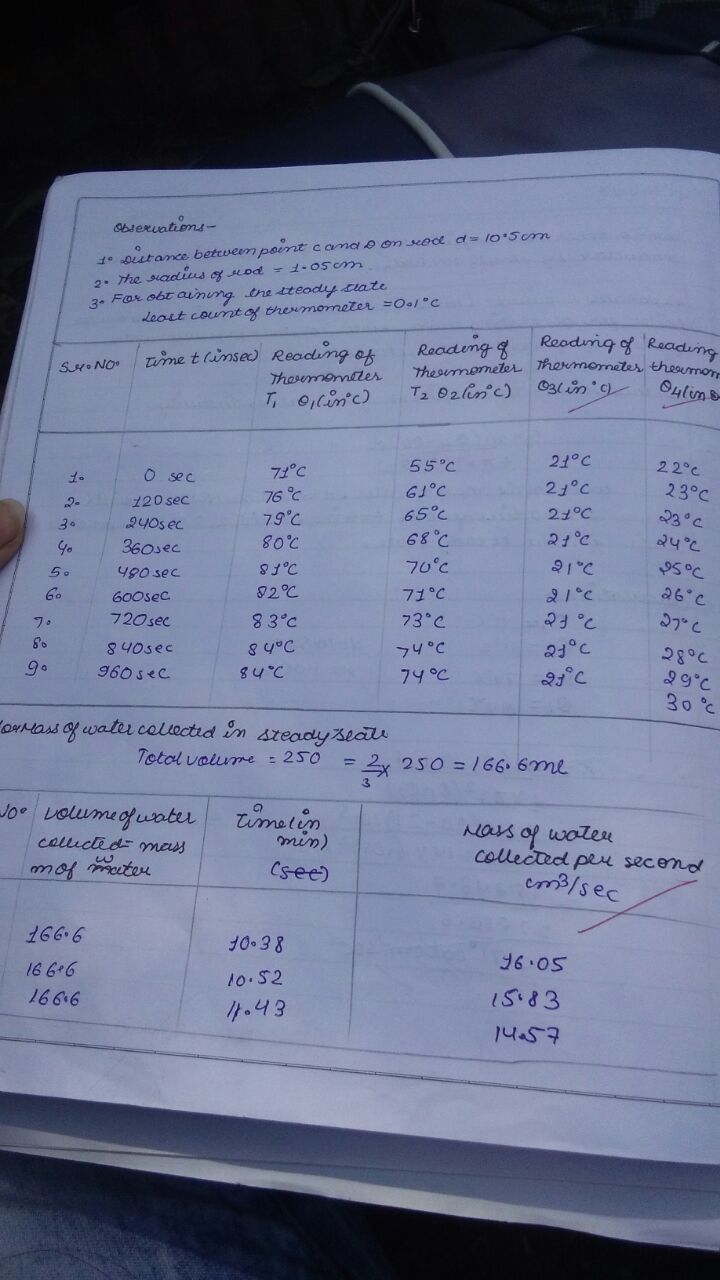 Observations-
1. Distance between point C and D on rod d = 10.5cm
2. The radius of rod = 1.05cm
3. For obtaining the steady state
Least count of thermometer = 0.1°C
Sr. No. Time t (in sec) Reading of Thermometer T1 θ1 (in °C) Reading of Thermometer T2 θ2 (in °C) Reading of Thermometer θ3 (in °C) Reading thermom θ4 (in
1. 0 sec 71°C 55°C 21°C 22°C
2. 120sec 76°C 61°C 21°C 23°C
3. 240sec 79°C 65°C 21°C 23°C
4. 360sec 80°C 68°C 21°C 24°C
5. 480sec 81°C 70°C 21°C 25°C
6. 600sec 82°C 71°C 21°C 26°C
7. 720sec 83°C 73°C 21°C 27°C
8. 840sec 84°C 74°C 21°C 28°C
9. 960sec 84°C 74°C 21°C 29°C
30°C
Mass of water collected in steady state
Total volume = 250 = 2/3 x 250 = 166.6ml
No. Volume of water collected = mass m of water Time (in min) (sec) Mass of water collected per second cm³/sec
166.6 10.38 16.05
166.6 10.52 15.83
166.6 11.43 14.57